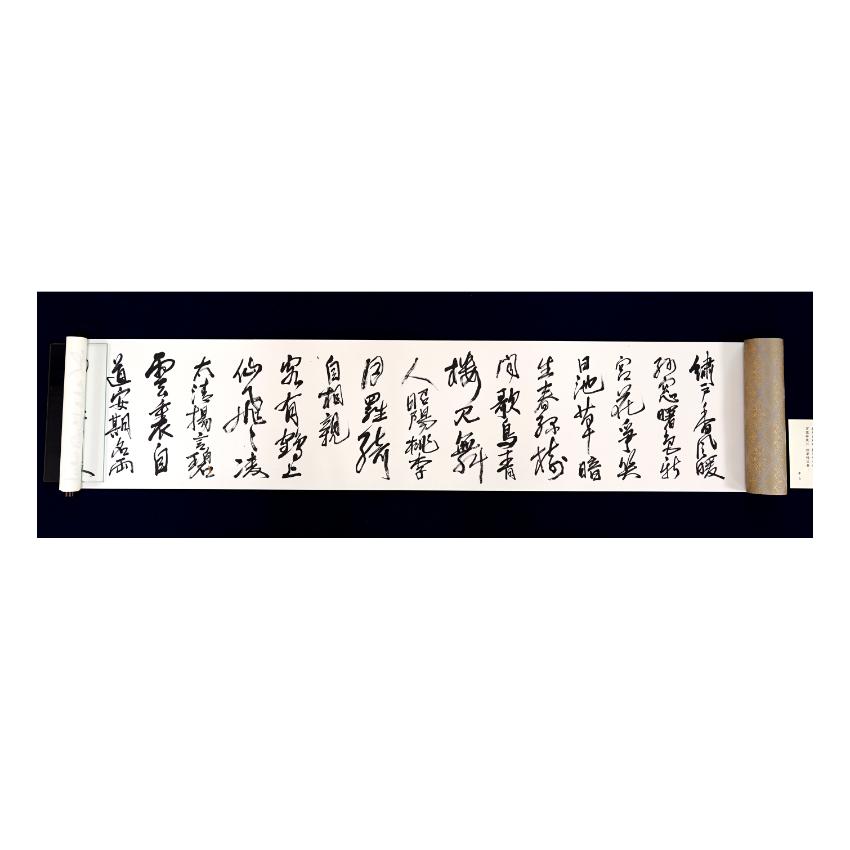 繡戸香風暖
紗窓曙色新
宮花爭笑
日池草暗
生春綠樹
聞歌鳥青
樓見舞
人昭陽桃李
月羅綺
自相親
客有鶴上
仙飛々凌
太清揚言碧
雲裏自
道安期名兩